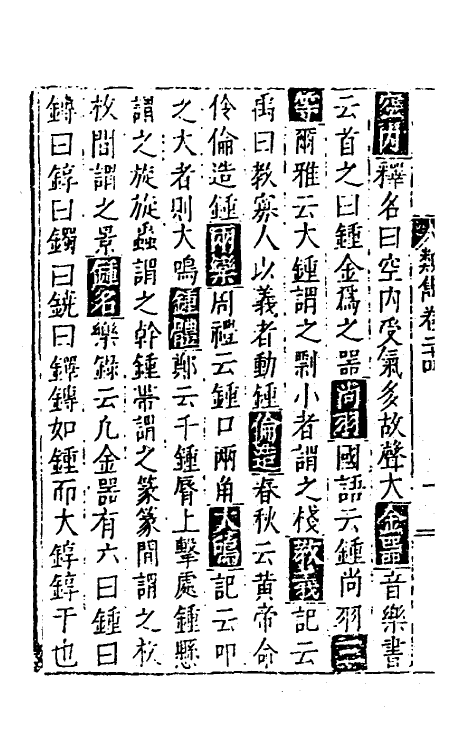 空内釋名曰空内受氣多故聲大金器音樂書
云首之曰鍾金爲之器尚羽國語云鍾尚羽二
等爾雅云大鍾謂之剽小者謂之棧教義記云
禹曰教寡人以義者動鍾倫造春秋云黄帝命
伶倫造鍾兩欒周禮云鍾口兩角大鳴記云叩
之大者則大鳴鍾體鄭云千鍾脣上擊處鍾懸
謂之旋旋蟲謂之幹鍾帶謂之篆篆間謂之枚
枚間謂之景鍾名樂錄云凡金器有六曰鍾曰
鎛曰錞曰鐲曰鐃曰鐸鎛如鍾而大錞錞于也
類雋卷二十四